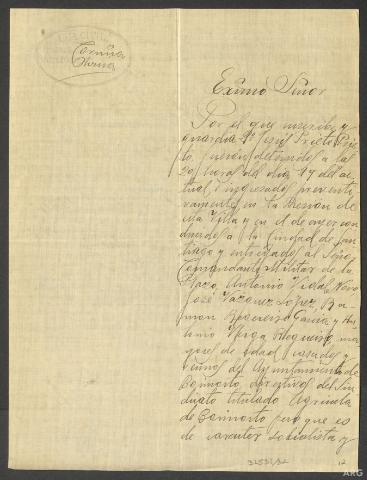 Coruña
Exmo Señor
Por el que suscribe y
guardia 2º Jesús Prieto Prie
to, fueron detenidos a las
20 horas del día 17 del ac
tual, e ingresados preventi
vamente en la Prisión de
esta Villa y en el de ayer con
ducidos a la Ciudad de San
tiago y entregados al Señor
Comandante Militar de la
Plaza, Antonio Vidal
José Vázquez López, Ra
mon García y An
ma
yores de edad, casados y
vecinos del Ayuntamiento de
Boimorto, directivos del Sin
dicato titulado Agrícola
de Boimorto pero que es
de caracter socialista y
ARG